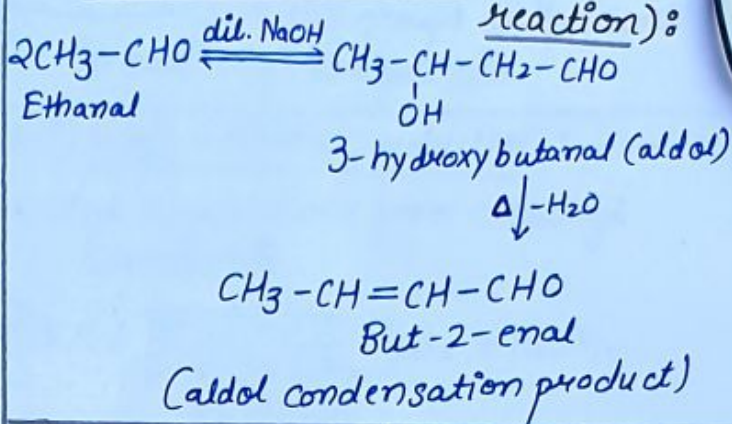 reaction):
2CH3-CHO dil. NaOH ⇌ CH3-CH-CH2-CHO
Ethanal OH
3-hydroxybutanal (aldol)
Δ -H2O
CH3-CH=CH-CHO
But-2-enal
(aldol condensation product)